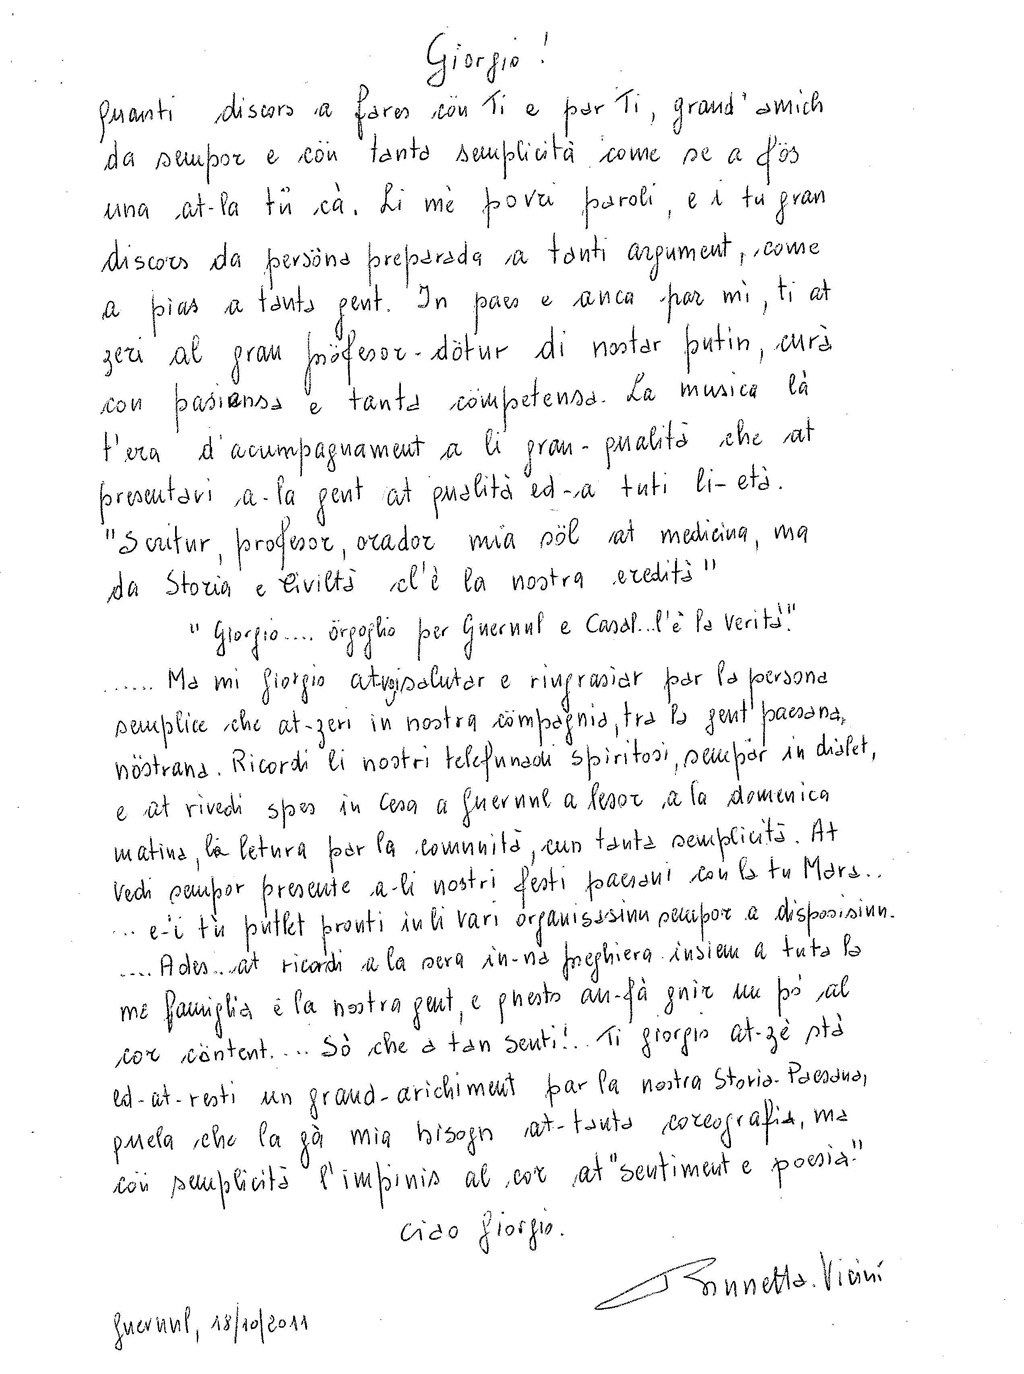 Giorgio!
Quanti discors a fares cön Ti e par Ti, grand' amich
da sempor e cön tanta semplicità come se a fös
una at-la tü cà. Li mè povri paroli, e i tu gran
discors da persöna preparada a tanti argument, come
a pias a tanta gent. In paes e anca par mì, ti at
zeri al gran pröfesor-dötur di nostar putin, curà
con pasiensa e tanta cömpetensa. La musica là
t'era d'acumpagnament a li gran-qualità che at
presentavi a-la gent at qualità ed-a tuti li-età.
"Scritur, profesor, orador mia söl at medicina, ma
da Storia e Civiltà cl'è la nostra eredità"
"Giorgio.... örgoglio per Guernul e Casal...l'è la Verità!"
...... Ma mi Giorgio atvojsalutar e ringrasiar par la persona
semplice che at-zeri in nostra cömpagnia, tra la gent paesana,
nöstrana. Ricordi li nostri telefunadi spiritosi, sempär in dialet,
e at rivedi spes in Cesa a Guernul a lesor a la domenica
matina, la letura par la comunità, cun tanta semplicità. At
Vedi sempor presente a-li nostri festi paesani con la tu Mara..
... e-i tü putlet pronti in li vari organisasiun sempor a disposisiun.
.... Ades...at ricordi a la sera in-na preghiera insiem a tuta la
mè famiglia e la nostra gent, e questo an-fà gnir un pó al
cor cöntent.... Sò che a tan senti!.. Ti Giorgio at-zè stà
ed-at-resti un grand-arichiment par la nostra Storia-Paesana,
quela che la gà mia bisogn at-tanta coreografia, ma
cön semplicità l'impinis al cor at "sentiment e poesia."
Ciao Giorgio.
Vicini
Guernul, 18/10/2011